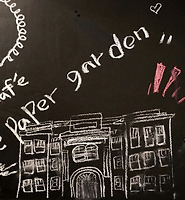 afe
e Paper garden